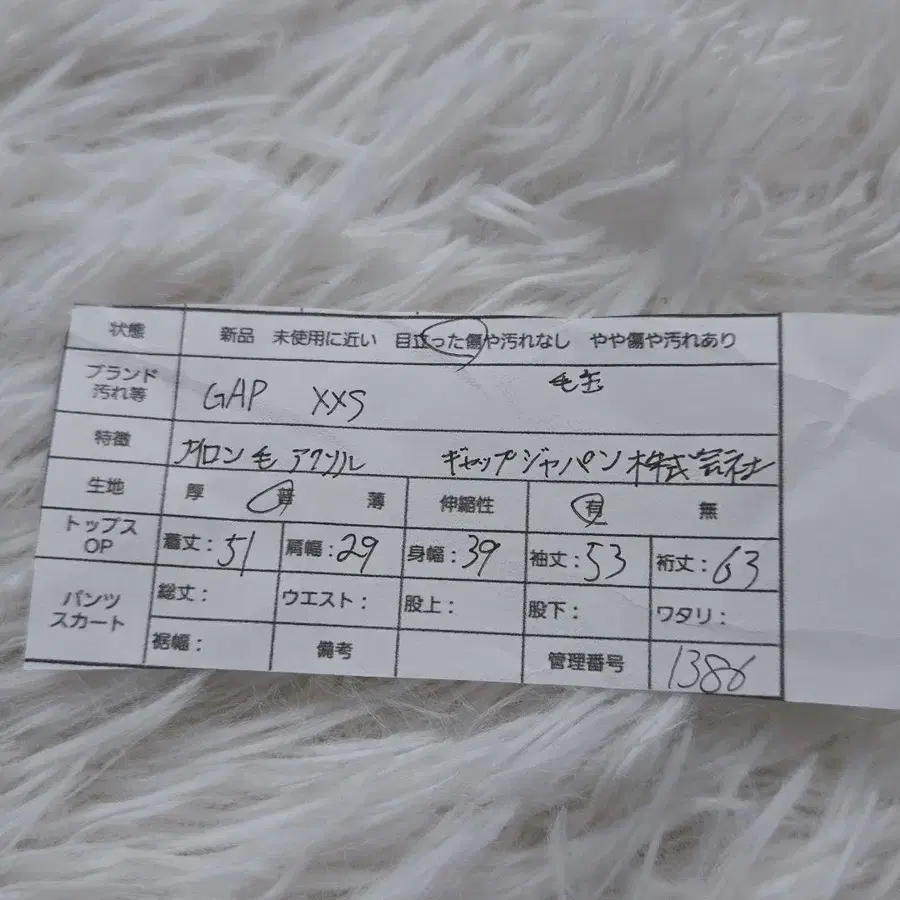 状態 新品 未使用に近い 目立った傷や汚れなし やや傷や汚れあり
ブランド 毛玉
汚れ等 GAP XXS
特徴 ナイロン 毛 アクリル ギャップジャパン株式会社
生地 厚 普 薄 伸縮性 有 無
トップス OP 着丈：51 肩幅：29 身幅：39 袖丈：53 裄丈：63
パンツ スカート 総丈： ウエスト： 股上： 股下： ワタリ：
裾幅： 備考 管理番号 1386